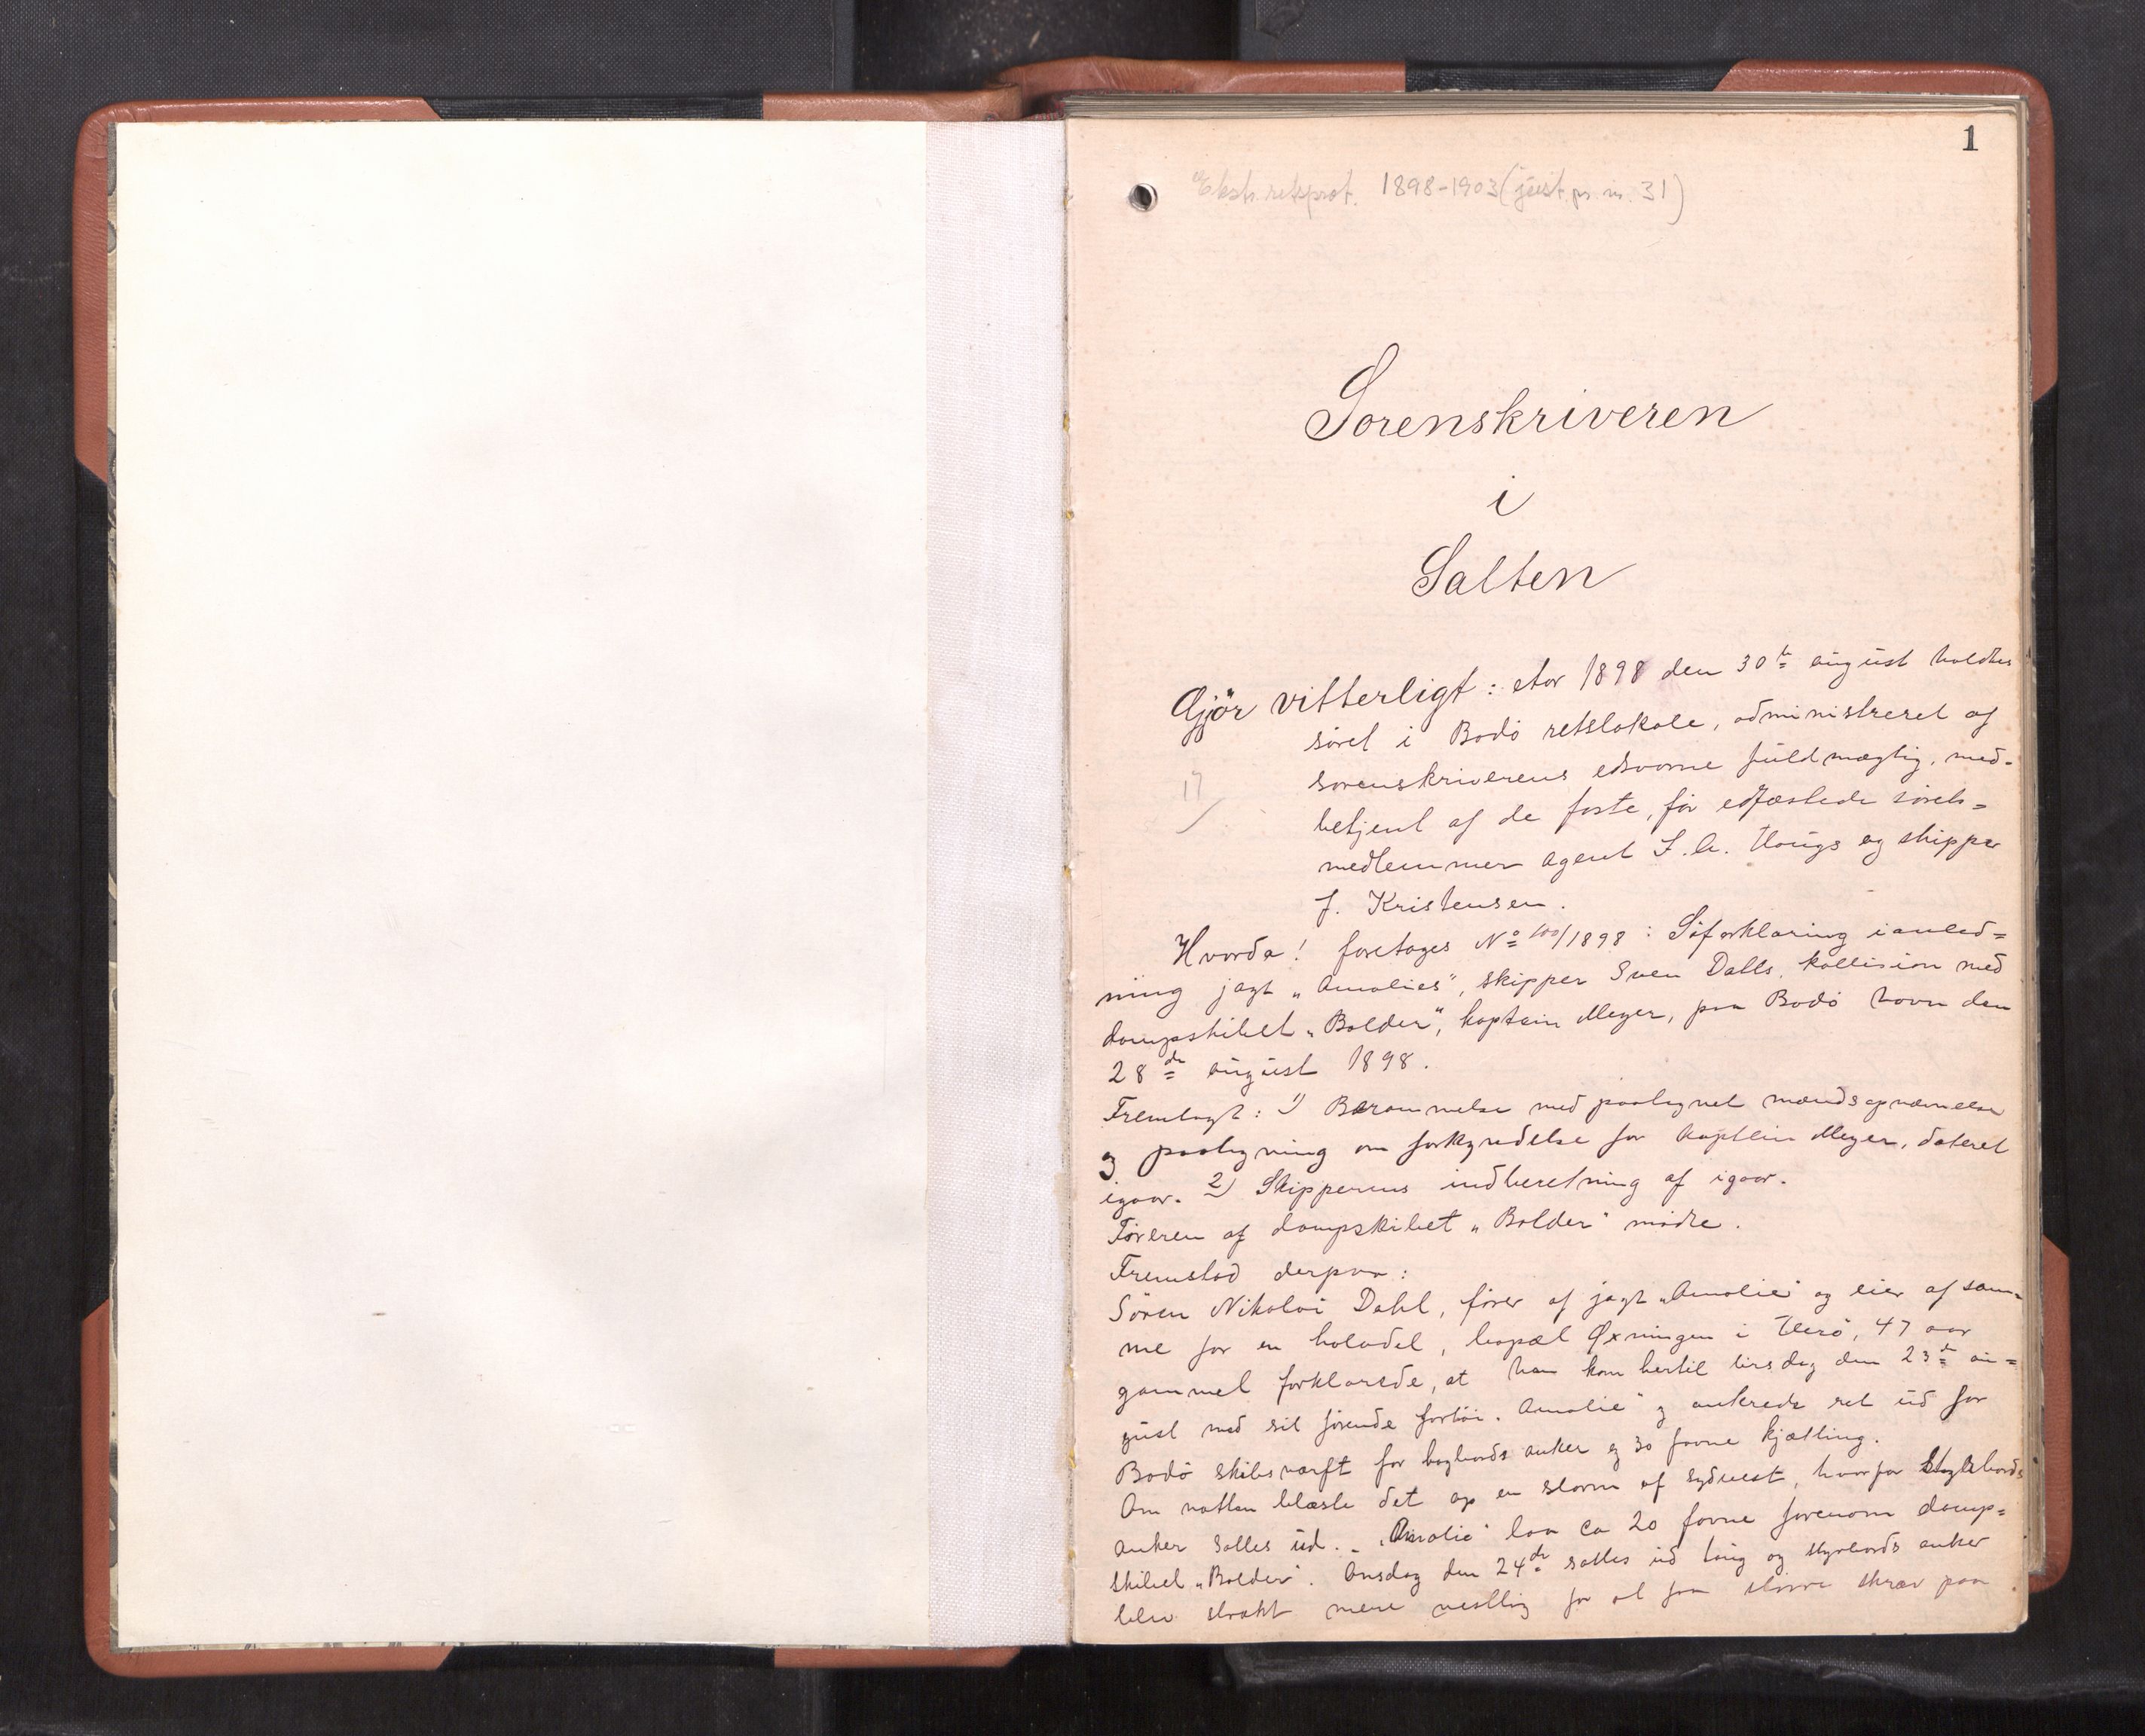 1
Ekstr.retsprot. 1898-1903 (just.pr. nr. 31)
Sorenskriveren
i
Salten
Gjör vitterligt: Aar 1898 den 30te august holdtes
söret i Bodö retslokale, administreret af
sorenskriverens edsvorne fuldmægtig, med-
betjent af de faste, för edfæstede sörets=
medlemmer agent og skipper
J. Kristensen.
17
Hvorda! foretoges No 100/1898: Söforklaring ianled=
ning jagt "Amalies", skipper Sven Dalls, kollision med
dampskibet "Balder", kaptein Meyer, paa Bodö havn den
28de august 1898.
Fremlagt: 1) Berammelse med paategnet mandsopnævnelse
og paategning om forkyndelse for kaptein Meyer, dateret
igaar. 2) Skipperens indberetning af igaar.
Föreren af dampskibet "Balder" mödte.
Fremstod derpaa:
Sören Nikolai Dahl, förer af jagt "Amalie" og eier af sam-
me for en halvdel, bopæl Öxningen i Herö, 47 aar
gammel forklarede, at han kom hertil tirsdag den 23de au=
gust med sit förende fartöi "Amalie" og ankrede ret ud for
Bodö skibsværft for bagbords anker og 30 favne kjætting.
Om natten blæste det op en storm af sydvest, hvorfor styrbords
anker sattes ud. - "Amalie" laa ca 20 favne forenom damp=
skibet "Balder". Onsdag den 24de sattes ud taug og styrbords anker
blev strakt mere vestlig for at faa större skræv paa